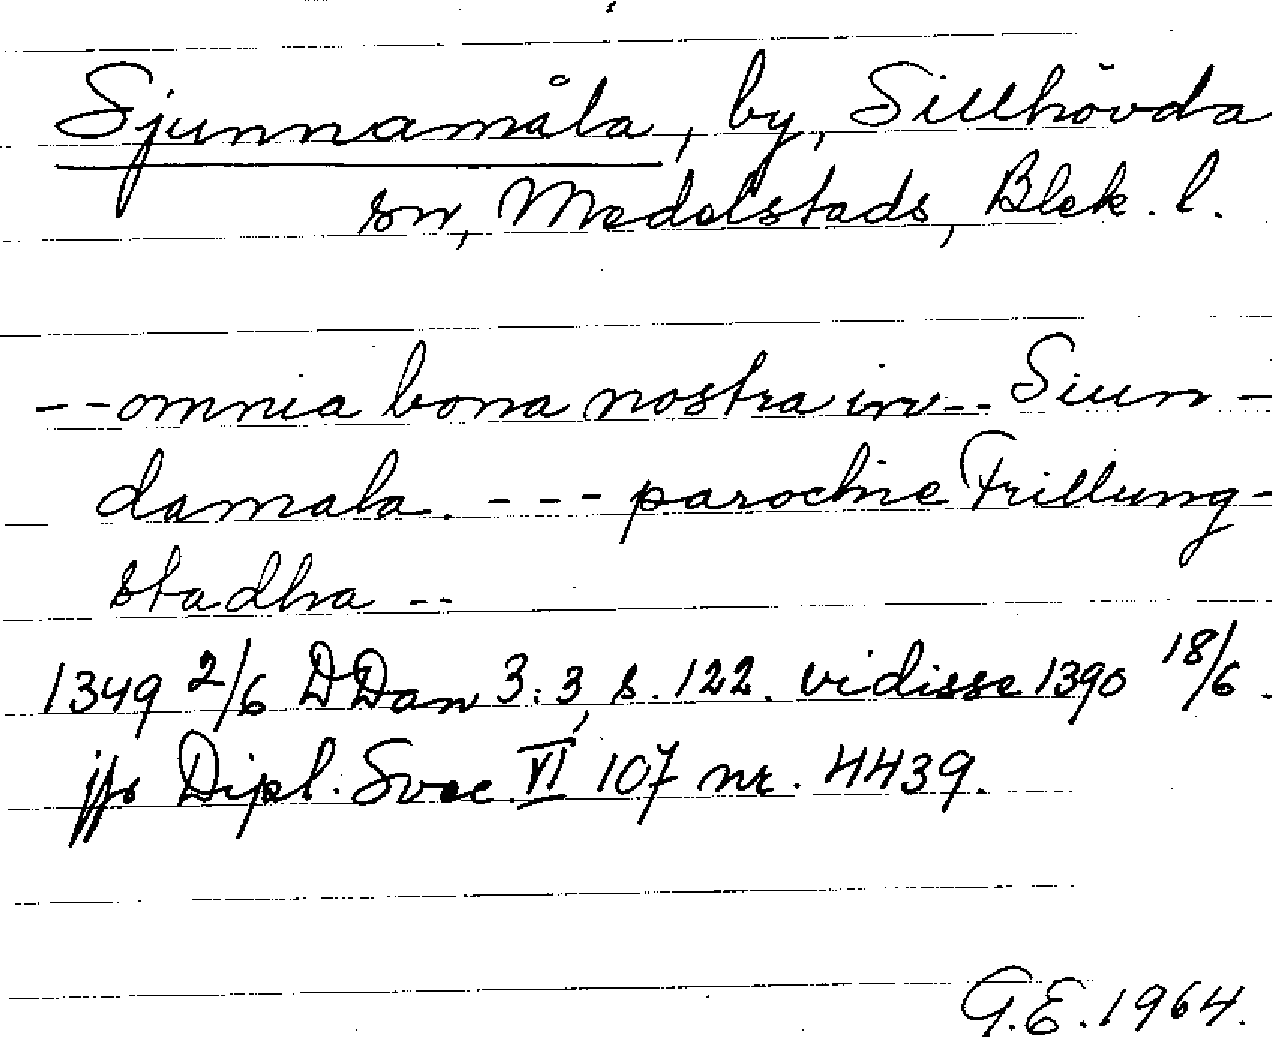 Sjunnamåla, by, Sillhövda
sn, Medelstads, Blek. l.
--omnia bona nostra in -- Siun-
damala. --- parochie Frillung-
stadha --
1349 2/6 DDan 3:3, s. 122. vidisse 1390 18/6.
jfr Dipl. Svec. VI, 107 nr. 4439.
G.E. 1964.